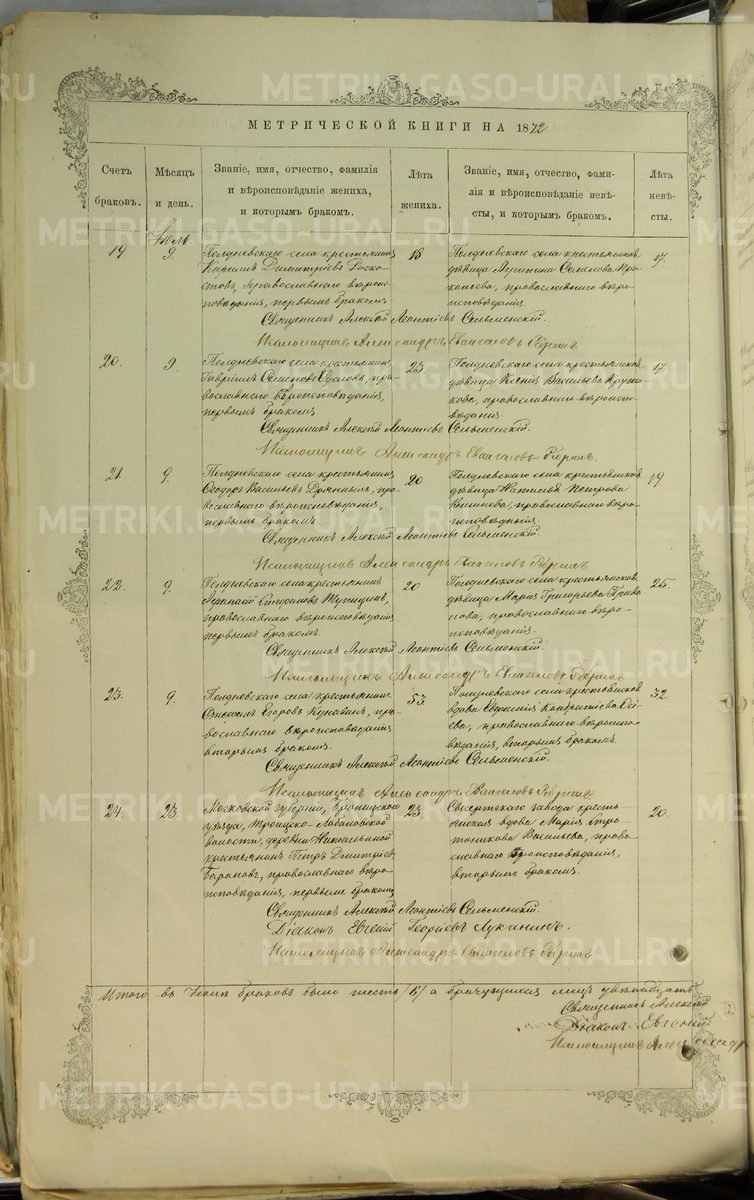 МЕТРИЧЕСКОЙ КНИГИ НА 1872
Счетъ браковъ.
Мѣсяцъ и день.
Званіе, имя, отчество, фамилія
и вѣроисповѣданіе жениха,
и которымъ бракомъ.
Лѣта жениха.
Званіе, имя, отчество, фами-
лія и вѣроисповѣданіе невѣ-
сты, и которымъ бракомъ.
Лѣта невѣ-
сты.
19
9.
Полдневскаго села крестьянинъ
Кириллъ Димитріевъ
православнаго вѣроис-
повѣданія, первымъ бракомъ
18
Полдневскаго села крестьянская
дѣвица Агрипина Семенова
православнаго вѣро-
исповѣданія
17.
Священникъ Алексѣй Леонтіевъ Сельменскій.
Псаломщикъ Александръ
20.
9.
Полдневскаго села крестьянинъ
Гавріилъ Семеновъ пра-
вославнаго вѣроисповѣданія,
первымъ бракомъ
23.
Полдневскаго села крестьянская
дѣвица Ксенія Васильева
православнаго вѣроиспо-
вѣданія
17.
Священникъ Алексѣй Леонтіевъ Сельменскій.
Псаломщикъ Александръ
21.
9.
Полдневскаго села крестьянинъ
Ѳеодоръ Васильевъ пра-
вославнаго вѣроисповѣданія,
первымъ бракомъ
20
Полдневскаго села крестьянская
дѣвица Наталья Петрова
православнаго вѣро-
исповѣданія
19
Священникъ Алексѣй Леонтіевъ Сельменскій
Псаломщикъ Александръ
22.
9.
Полдневскаго села крестьянинъ
Аѳанасій Стефановъ
православнаго вѣроисповѣданія
первымъ бракомъ
20
Полдневскаго села крестьянская
дѣвица Марія Григорьева
православнаго вѣро-
исповѣданія.
25.
Священникъ Алексѣй Леонтіевъ Сельменскій
Псаломщикъ Александръ
23.
9.
Полдневскаго села крестьянинъ
Егоровъ пра-
вославнаго вѣроисповѣданія
вторымъ бракомъ.
53.
Полдневскаго села крестьянская
вдова Евдокія Кондратіева
православнаго вѣроиспо-
вѣданія, вторымъ бракомъ.
32.
Священникъ Алексѣй Леонтіевъ Сельменскій.
Псаломщикъ Александръ
24.
23.
Московской губерніи, Бронницкаго
уѣзда, Троицко-Лобановской
волости, деревни
крестьянинъ Петръ Дмитріевъ
Барановъ, православнаго вѣро-
исповѣданія, первымъ бракомъ
23.
Сысертскаго завода кресть-
янская вдова Марія
Васильева, право-
славнаго вѣроисповѣданія,
вторымъ бракомъ.
20.
Священникъ Алексѣй Леонтіевъ Сельменскій.
Діаконъ Евгеній Георгіевъ Луканинъ.
Псаломщикъ Александръ
Итого въ браковъ было шесть /6/ а брачущихся лицъ двѣнадцать
Священникъ Алексѣй
Діаконъ Евгеній
Псаломщикъ Александръ
METRIKI.GASO-URAL.RU